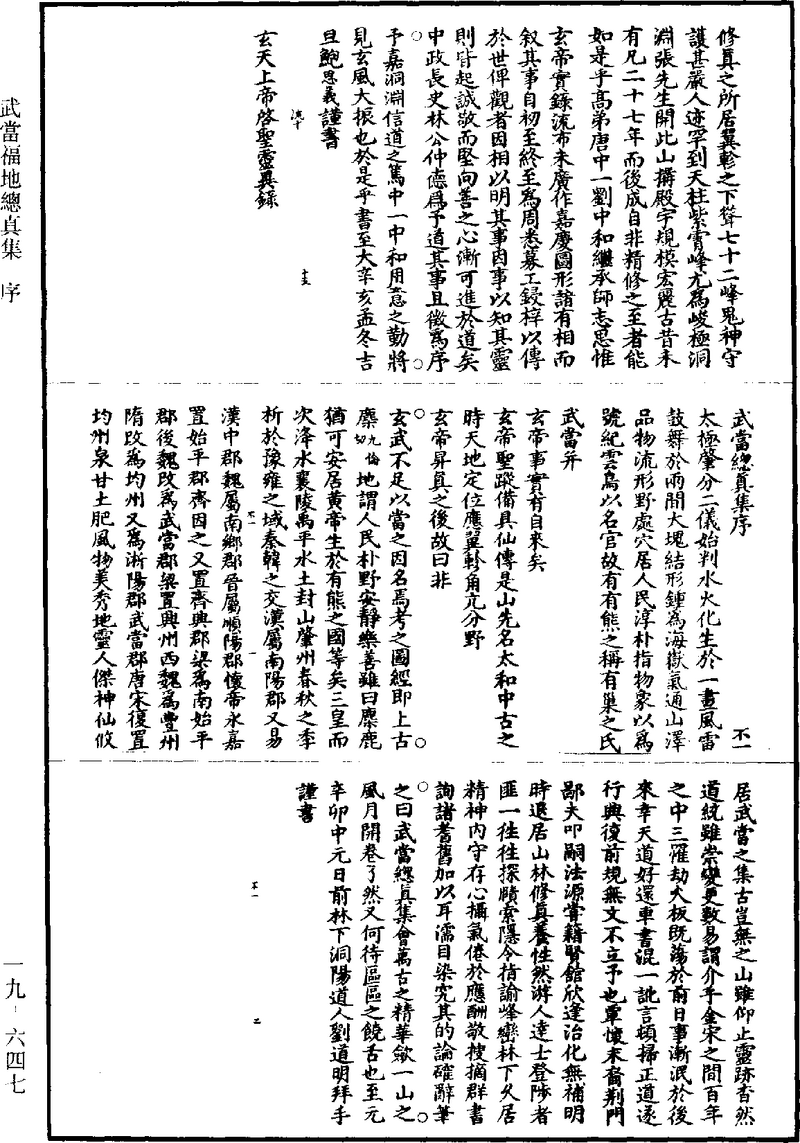 武當福地總真集　序
一九－六四七
修真之所居翼軫之下聳七十二峰鬼神守
護甚嚴人迹罕到天柱紫霄峰尤為峻極洞
淵張先生開此山搆殿宇規模宏麗古昔未
有凡二十七年而後成自非精修之至者能
如是乎高弟唐中一劉中和繼承師志思惟
玄帝實錄流布未廣作嘉慶圖形諸有相而
叙其事自初至終至為周悉募工鋟梓以傳
於世俾觀者因相以明其事因事以知其靈
則皆起誠敬而堅向善之心漸可進於道矣
中政長史林公仲德為予道其事且徵為序
予嘉洞淵信道之篤中一中和用意之勤將
見玄風大振也於是乎書至大辛亥孟冬吉
旦鮑思義謹書
玄天上帝啓聖靈異錄
武當總真集序
不一
太極肇分二儀始判水火化生於一畫風雷
鼓舞於兩間大塊結形鍾為海嶽氣通山澤
品物流形野處穴居人民淳朴指物象以為
號紀雲鳥以名官故有有熊之稱有巢之氏
武當弁
玄帝事實有自來矣
玄帝聖蹤備具仙傳是山先名太和中古之
時天地定位應翼軫角亢分野
玄帝昇真之後故曰非
玄武不足以當之因名焉考之圖經即上古
麇九倫切地謂人民朴野安靜樂善雖曰麋鹿
猶可安居黃帝生於有熊之國等矣三皇而
次洚水襄陵禹平水土封山肇州春秋之季
析於豫雍之域秦韓之交漢屬南陽郡又易
漢中郡魏屬南鄉郡晉屬順陽郡懷帝永嘉
置始平郡齊因之又置齊興郡梁為南始平
郡後魏改為武當郡梁置興州西魏為豐州
隋改為均州又為淅陽郡武當郡唐宋復置
均州泉甘土肥風物美秀地靈人傑神仙攸
居武當之集古豈無之山雖仰止靈跡杳然
道統雖崇變更數易謂介乎金宋之間百年
之中三罹劫火板既蕩於前日事漸泯於後
來幸天道好還車書混一訛言頓掃正道遂
行興復前規無文不立予也覃懷末裔荆門
鄙夫叩嗣法源嘗籍賢館欣逢治化無補明
時退居山林修真養性然游人達士登陟者
匪一往往探賾索隱令指諭峰巒林下久居
精神內守存心攝氣倦於應酬敬搜摘群書
詢諸耆舊加以耳濡目染究其的論確辭筆
之曰武當總真集會萬古之精華歛一山之
風月開卷了然又何待區區之饒舌也至元
辛卯中元日前林下洞陽道人劉道明拜手
謹書